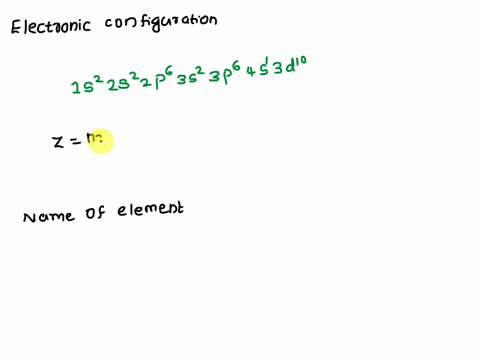 Electronic configuration
1s² 2s² 2p⁶ 3s² 3p⁶ 4s¹ 3d¹⁰
Z =
Name of element